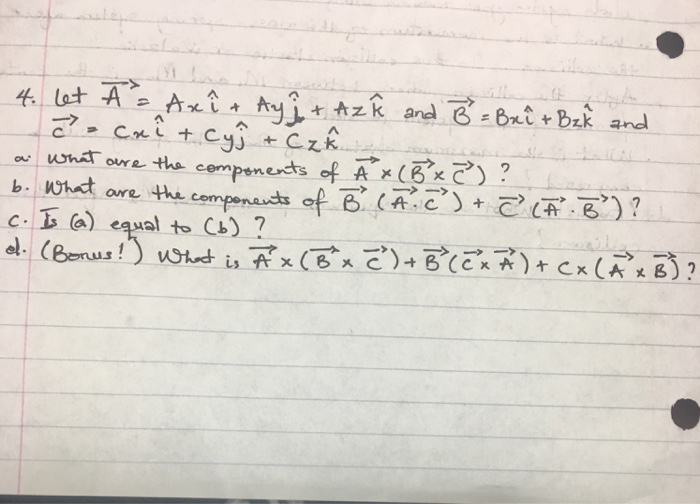 4. Let A⃗ = Axî + Ayĵ + Azk̂ and B⃗ = Bxî + Bzk̂ and
C⃗ = Cxî + Cyĵ + Czk̂
a. What are the components of A⃗ × (B⃗ × C⃗) ?
b. What are the components of B⃗ (A⃗ . C⃗) + C⃗ (A⃗ . B⃗) ?
c. Is (a) equal to (b) ?
d. (Bonus!) What is A⃗ × (B⃗ × C⃗) + B⃗ (C⃗ × A⃗) + C × (A⃗ × B⃗) ?